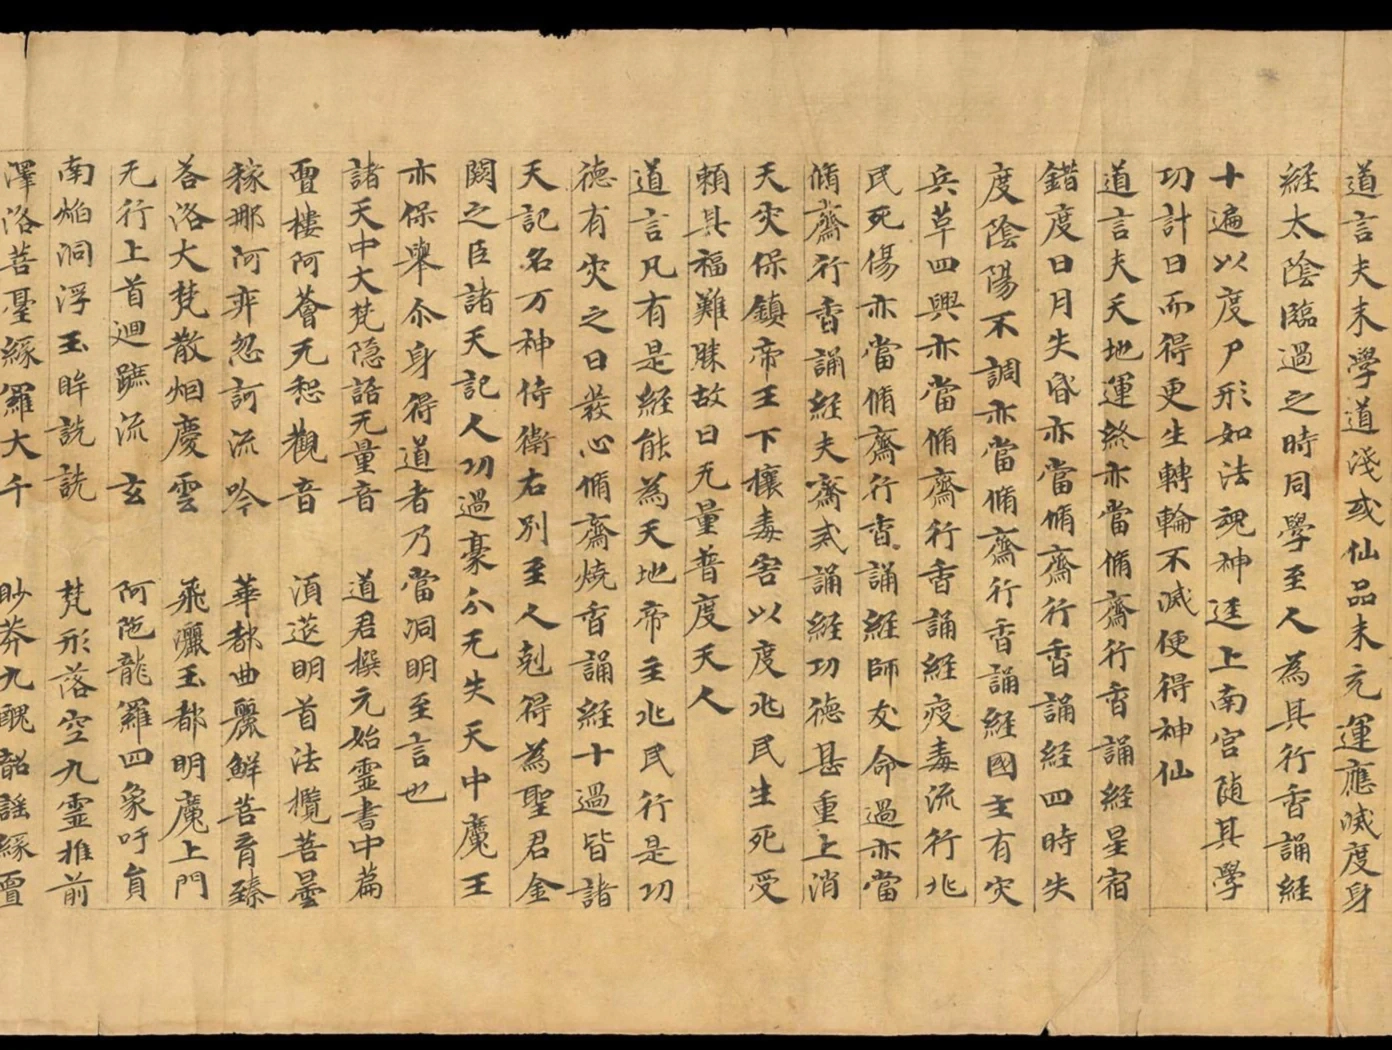 道言夫末學道淺或仙品未充運應滅度身
經太陰臨過之時同學至人為其行香誦經
十遍以度尸形如法魂神逕上南宮随其學
功計日而得更生轉輪不滅便得神仙
道言夫天地運終亦當脩齋行香誦經星宿
錯度日月失昏亦當脩齋行香誦經四時失
度陰陽不調亦當脩齋行香誦經國主有灾
兵草四興亦當脩齋行香誦經疫毒流行兆
民死傷亦當脩齋行香誦經師友命過亦當
脩齋行香誦經夫齋戒誦經功德甚重上消
天灾保鎮帝王下穰毒害以度兆民生死受
賴其福難勝故曰无量普度天人
道言凡有是經能為天地帝主兆民行是功
德有灾之日發心脩齋燒香誦經十過皆諸
天記名万神侍衛右別至人剋得為聖君金
闕之臣諸天記人功過豪分无失天中魔王
亦保舉尒身得道者乃當洞明至言也
諸天中大梵隐語无量音 道君撰元始靈書中篇
亶樓阿薈无惒觀音 湏䓕明首法攬菩曇
稼那阿弈忽訶流吟 華都曲麗鮮菩育臻
荅洛大梵散烟慶雲 飛灑玉都明魔上門
无行上首迴蹠流玄 阿陁龍羅四象吁員
南焰洞浮玉眸詵詵 梵形落空九靈推前
澤洛菩臺緣羅大千 眇莽九醜韶謠緣亶